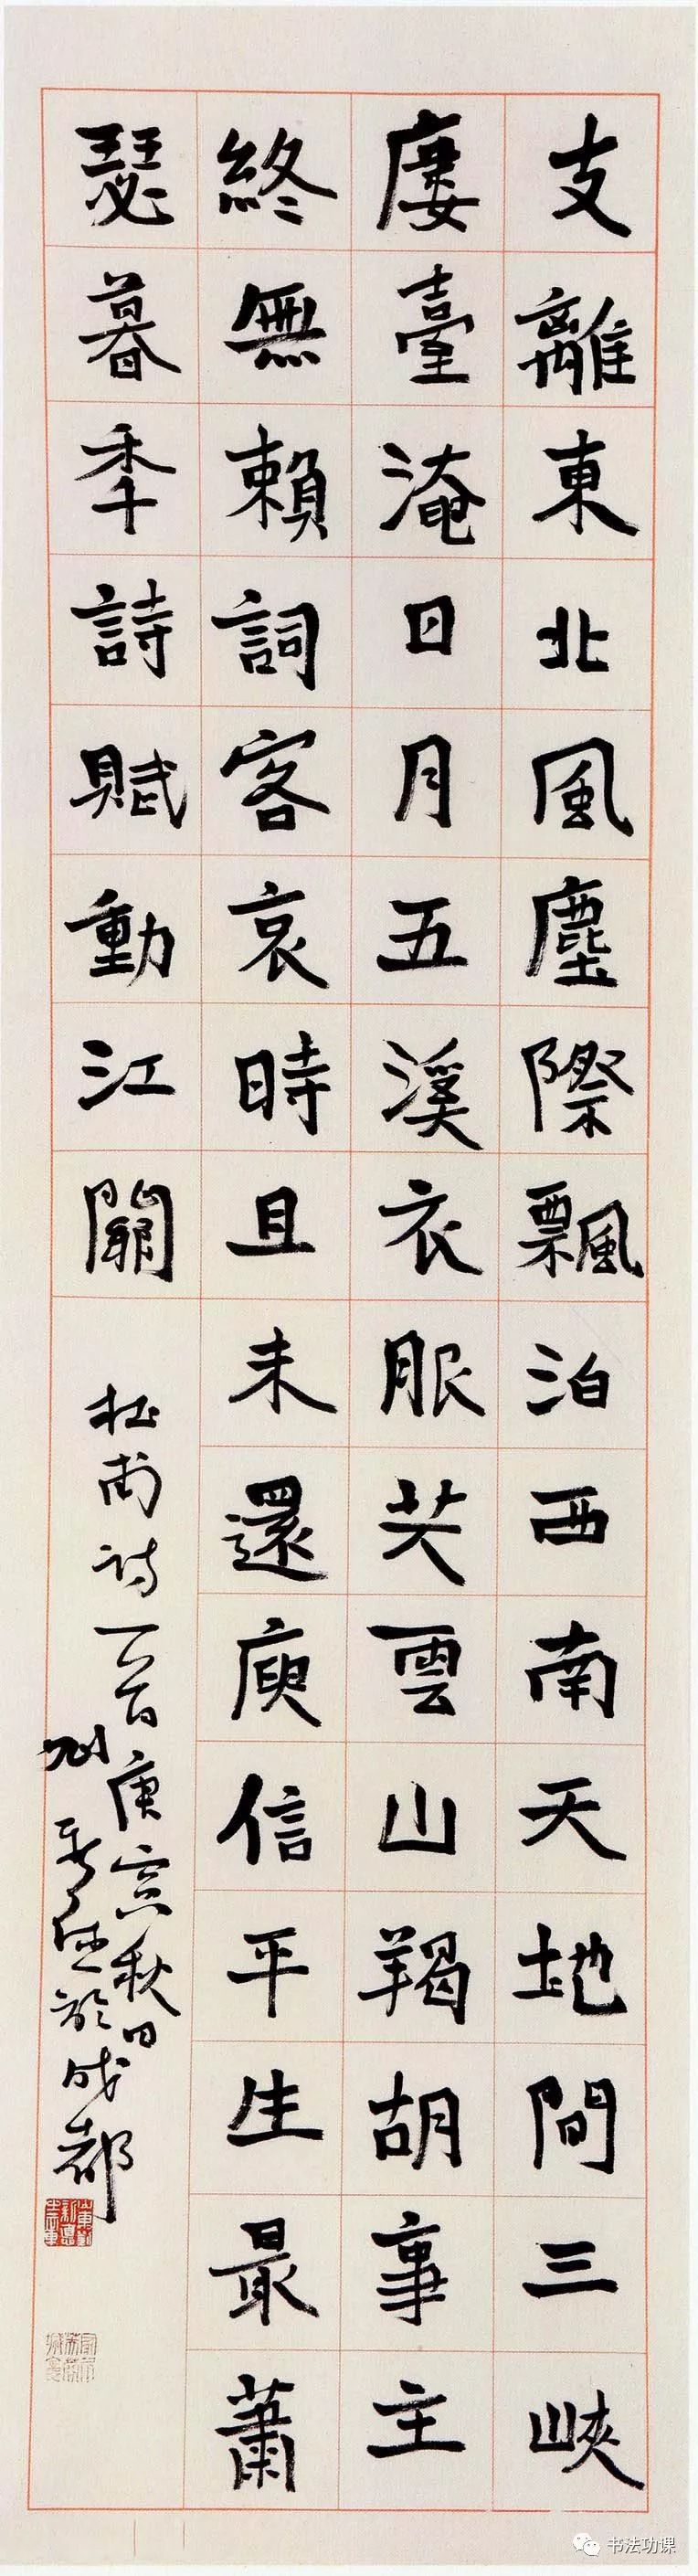 支離東北風塵際飄泊西南天地間三峽
廔臺淹日月五溪衣服共雲山羯胡事主
終無賴詞客哀時且未還庾信平生最蕭
瑟暮秊詩賦動江關
杜甫詩一首庚寅秋日
刘新德於成都
书法功课